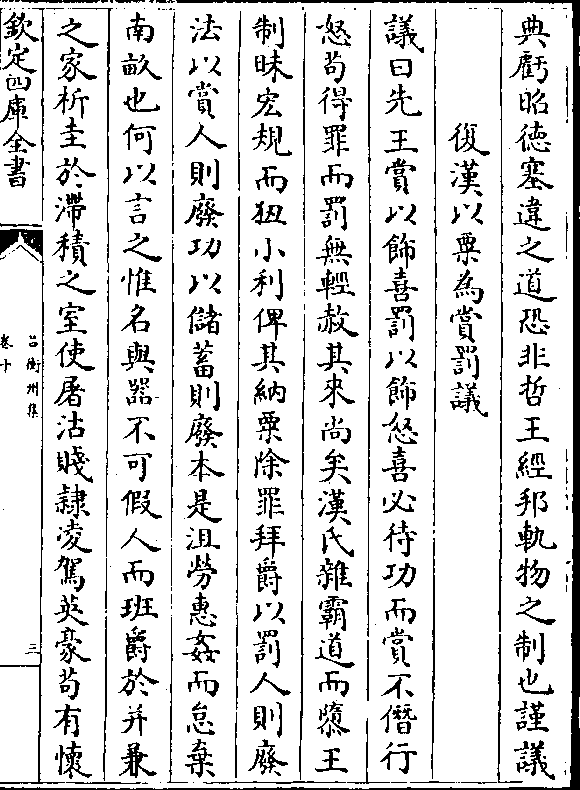 典虧昭德塞違之道恐非哲王經邦軌物之制也謹議
復漢以粟為賞罰議
議曰先王賞以飾喜罰以飾怒喜必待功而賞不僭行
怒茍得罪而罰無輕赦其來尚矣漢氏雜霸道而隳王
制昧宏規而狃小利俾其納粟除罪拜爵以罰人則廢
法以賞人則廢功以儲蓄則廢本是沮勞惠姦而怠棄
南畝也何以言之惟名與器不可假人而班爵於并兼
之家析圭於滯積之室使屠沽賤隷凌駕英豪茍有懷
欽定四庫全書
呂衡州集
卷十
三